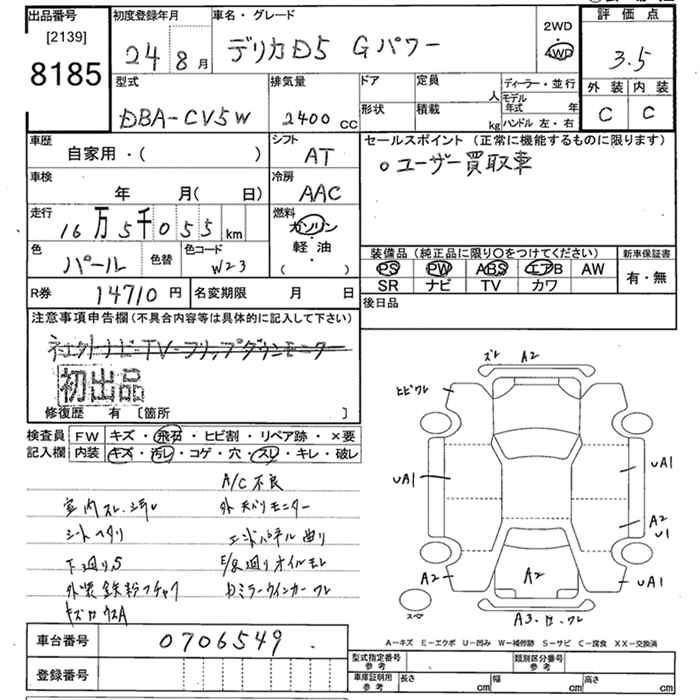 出品番号 初度登録年月 車名・グレード 評価点
[2139]
8185
24年8月 デリカD5 Gパワー 2WD 4WD 3.5
型式 排気量 ドア 定員 人 ディーラー・並行 外装 内装
DBA-CV5W 2400 CC 形状 積載 kg モデル年式 年 ハンドル 左・右 C C
車歴 シフト セールスポイント (正常に機能するものに限ります)
自家用・( ) AT
○ユーザー買取車
車検 冷房
年 月( 日) AAC
走行 燃料
16万5千055km ガソリン
軽・油
( )
色 色替 色コード
パール W23
装備品 (純正品に限り〇をつけてください) 新車保証書
PS PW ABS エアB AW 有・無
SR ナビ TV カワ
R券 14710円 名変期限 月 日
後日品
注意事項申告欄 (不具合内容等は具体的に記入して下さい)
ナビTV フリップダウンモニター
初出品
修復歴 有 [箇所 ]
検査員 FW キズ・飛石・ヒビ割・リペア跡・×要
記入欄 内装 キズ・汚レ・コゲ・穴・スレ・キレ・破レ
A/C不良
室内スレ
外 モニター
シートヘタリ
エンドパネル曲り
下廻りS
E/g廻りオイルモレ
外装鉄粉フチャク
Dミラーウインカーワレ
ズレ A2
ヒビワレ
UA1
UA1
A2
U1
A2
A2
UA1
スペア
A3
ワレ
A-キズ E-エクボ U-凹み W-補修跡 S-サビ C-腐食 XX-交換済
車台番号 0706549
登録番号
型式指定番号 参考 類別区分番号 参考
車庫証明用 参考 長さ cm 幅 cm 高さ cm